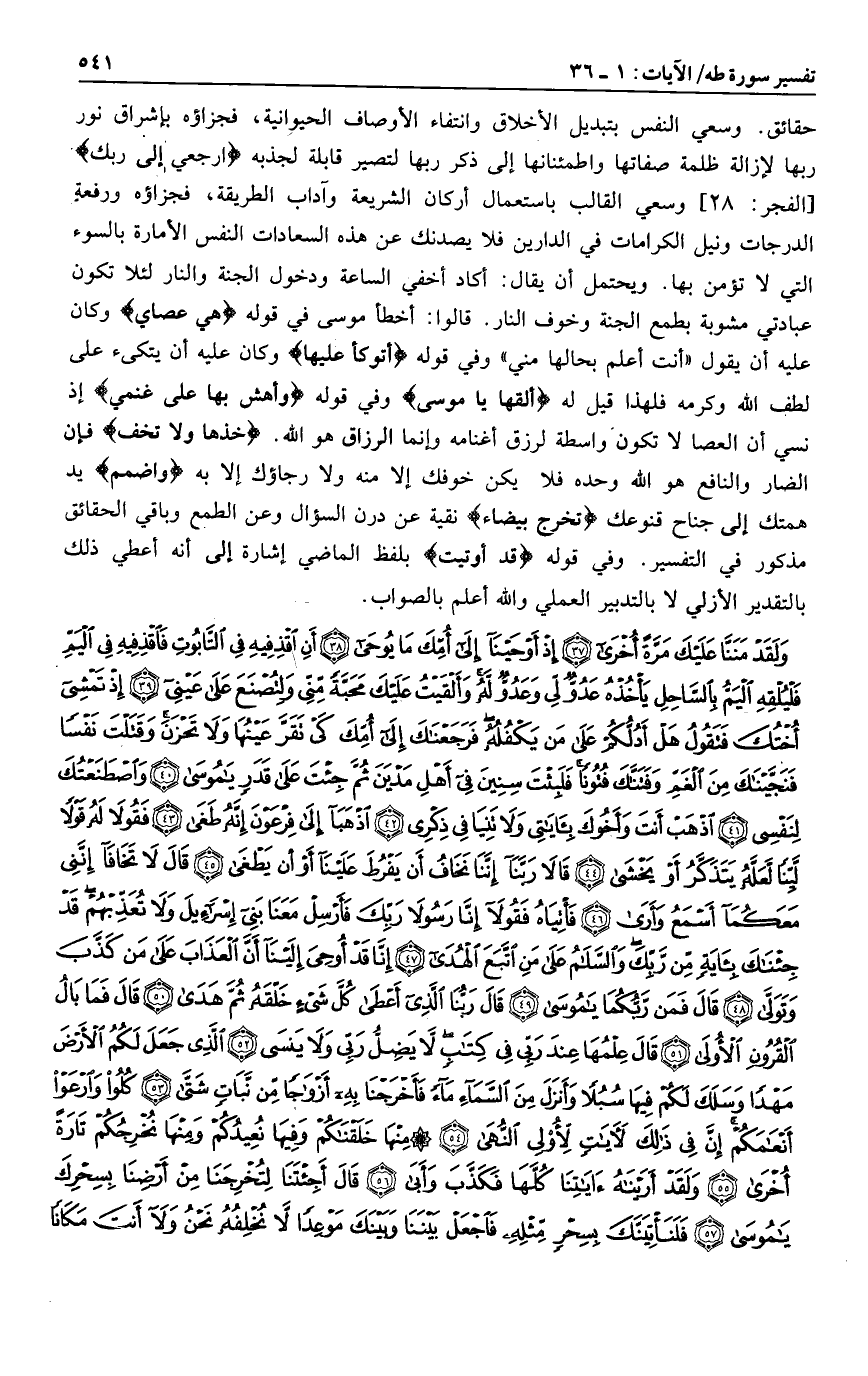 تفسير سورة طه/ الآيات: ١ ـ ٣٦
٥٤١
حقائق. وسعي النفس بتبديل الأخلاق وانتفاء الأوصاف الحيوانية، فجزاؤه بإشراق نور
ربها لإزالة ظلمة صفاتها واطمئنانها إلى ذكر ربها لتصير قابلة لجذبه ﴿ارجعي إلى ربك﴾
[الفجر: ٢٨] وسعي القالب باستعمال أركان الشريعة وآداب الطريقة، فجزاؤه ورفعة
الدرجات ونيل الكرامات في الدارين فلا يصدنك عن هذه السعادات النفس الأمارة بالسوء
التي لا تؤمن بها. ويحتمل أن يقال: أكاد أخفي الساعة ودخول الجنة والنار لئلا تكون
عبادتي مشوبة بطمع الجنة وخوف النار. قالوا: أخطأ موسى في قوله ﴿هي عصاي﴾ وكان
عليه أن يقول «أنت أعلم بحالها مني» وفي قوله ﴿أتوكأ عليها﴾ وكان عليه أن يتكىء على
لطف الله وكرمه فلهذا قيل له ﴿ألقها يا موسى﴾ وفي قوله ﴿وأهش بها على غنمي﴾ إذ
نسي أن العصا لا تكون واسطة لرزق أغنامه وإنما الرزاق هو الله. ﴿خذها ولا تخف﴾ فإن
الضار والنافع هو الله وحده فلا يكن خوفك إلا منه ولا رجاؤك إلا به ﴿واضمم﴾ يد
همتك إلى جناح قنوعك ﴿تخرج بيضاء﴾ نقية عن درن السؤال وعن الطمع وباقي الحقائق
مذكور في التفسير. وفي قوله ﴿قد أوتيت﴾ بلفظ الماضي إشارة إلى أنه أعطي ذلك
بالتقدير الأزلي لا بالتدبير العملي والله أعلم بالصواب.
وَلَقَدْ مَنَنَّا عَلَيْكَ مَرَّةً أُخْرَىٰ ﴿٣٧﴾ إِذْ أَوْحَيْنَآ إِلَىٰٓ أُمِّكَ مَا يُوحَىٰٓ ﴿٣٨﴾ أَنِ ٱقْذِفِيهِ فِى ٱلتَّابُوتِ فَٱقْذِفِيهِ فِى ٱلْيَمِّ
فَلْيُلْقِهِ ٱلْيَمُّ بِٱلسَّاحِلِ يَأْخُذْهُ عَدُوٌّ لِّى وَعَدُوٌّ لَّهُۥ وَأَلْقَيْتُ عَلَيْكَ مَحَبَّةً مِّنِّى وَلِتُصْنَعَ عَلَىٰ عَيْنِىٓ ﴿٣٩﴾ إِذْ تَمْشِىٓ
أُخْتُكَ فَتَقُولُ هَلْ أَدُلُّكُمْ عَلَىٰ مَن يَكْفُلُهُۥ فَرَجَعْنَٰكَ إِلَىٰٓ أُمِّكَ كَىْ تَقَرَّ عَيْنُهَا وَلَا تَحْزَنَ وَقَتَلْتَ نَفْسًا
فَنَجَّيْنَٰكَ مِنَ ٱلْغَمِّ وَفَتَنَّٰكَ فُتُونًا فَلَبِثْتَ سِنِينَ فِىٓ أَهْلِ مَدْيَنَ ثُمَّ جِئْتَ عَلَىٰ قَدَرٍ يَٰمُوسَىٰ ﴿٤٠﴾ وَٱصْطَنَعْتُكَ
لِنَفْسِى ﴿٤١﴾ ٱذْهَبْ أَنتَ وَأَخُوكَ بِـَٔايَٰتِى وَلَا تَنِيَا فِى ذِكْرِى ﴿٤٢﴾ ٱذْهَبَآ إِلَىٰ فِرْعَوْنَ إِنَّهُۥ طَغَىٰ ﴿٤٣﴾ فَقُولَا لَهُۥ قَوْلًا
لَّيِّنًا لَّعَلَّهُۥ يَتَذَكَّرُ أَوْ يَخْشَىٰ ﴿٤٤﴾ قَالَا رَبَّنَآ إِنَّنَا نَخَافُ أَن يَفْرُطَ عَلَيْنَآ أَوْ أَن يَطْغَىٰ ﴿٤٥﴾ قَالَ لَا تَخَافَآ إِنَّنِى
مَعَكُمَآ أَسْمَعُ وَأَرَىٰ ﴿٤٦﴾ فَأْتِيَاهُ فَقُولَآ إِنَّا رَسُولَا رَبِّكَ فَأَرْسِلْ مَعَنَا بَنِىٓ إِسْرَٰٓءِيلَ وَلَا تُعَذِّبْهُمْ قَدْ
جِئْنَٰكَ بِـَٔايَةٍ مِّن رَّبِّكَ وَٱلسَّلَٰمُ عَلَىٰ مَنِ ٱتَّبَعَ ٱلْهُدَىٰٓ ﴿٤٧﴾ إِنَّا قَدْ أُوحِىَ إِلَيْنَآ أَنَّ ٱلْعَذَابَ عَلَىٰ مَن كَذَّبَ
وَتَوَلَّىٰ ﴿٤٨﴾ قَالَ فَمَن رَّبُّكُمَا يَٰمُوسَىٰ ﴿٤٩﴾ قَالَ رَبُّنَا ٱلَّذِىٓ أَعْطَىٰ كُلَّ شَىْءٍ خَلْقَهُۥ ثُمَّ هَدَىٰ ﴿٥٠﴾ قَالَ فَمَا بَالُ
ٱلْقُرُونِ ٱلْأُولَىٰ ﴿٥١﴾ قَالَ عِلْمُهَا عِندَ رَبِّى فِى كِتَٰبٍ لَّا يَضِلُّ رَبِّى وَلَا يَنسَى ﴿٥٢﴾ ٱلَّذِى جَعَلَ لَكُمُ ٱلْأَرْضَ
مَهْدًا وَسَلَكَ لَكُمْ فِيهَا سُبُلًا وَأَنزَلَ مِنَ ٱلسَّمَآءِ مَآءً فَأَخْرَجْنَا بِهِۦٓ أَزْوَٰجًا مِّن نَّبَاتٍ شَتَّىٰ ﴿٥٣﴾ كُلُوا۟ وَٱرْعَوْا۟
أَنْعَٰمَكُمْ إِنَّ فِى ذَٰلِكَ لَـَٔايَٰتٍ لِّأُو۟لِى ٱلنُّهَىٰ ﴿٥٤﴾ ۞ مِنْهَا خَلَقْنَٰكُمْ وَفِيهَا نُعِيدُكُمْ وَمِنْهَا نُخْرِجُكُمْ تَارَةً
أُخْرَىٰ ﴿٥٥﴾ وَلَقَدْ أَرَيْنَٰهُ ءَايَٰتِنَا كُلَّهَا فَكَذَّبَ وَأَبَىٰ ﴿٥٦﴾ قَالَ أَجِئْتَنَا لِتُخْرِجَنَا مِنْ أَرْضِنَا بِسِحْرِكَ
يَٰمُوسَىٰ ﴿٥٧﴾ فَلَنَأْتِيَنَّكَ بِسِحْرٍ مِّثْلِهِۦ فَٱجْعَلْ بَيْنَنَا وَبَيْنَكَ مَوْعِدًا لَّا نُخْلِفُهُۥ نَحْنُ وَلَآ أَنتَ مَكَانًا